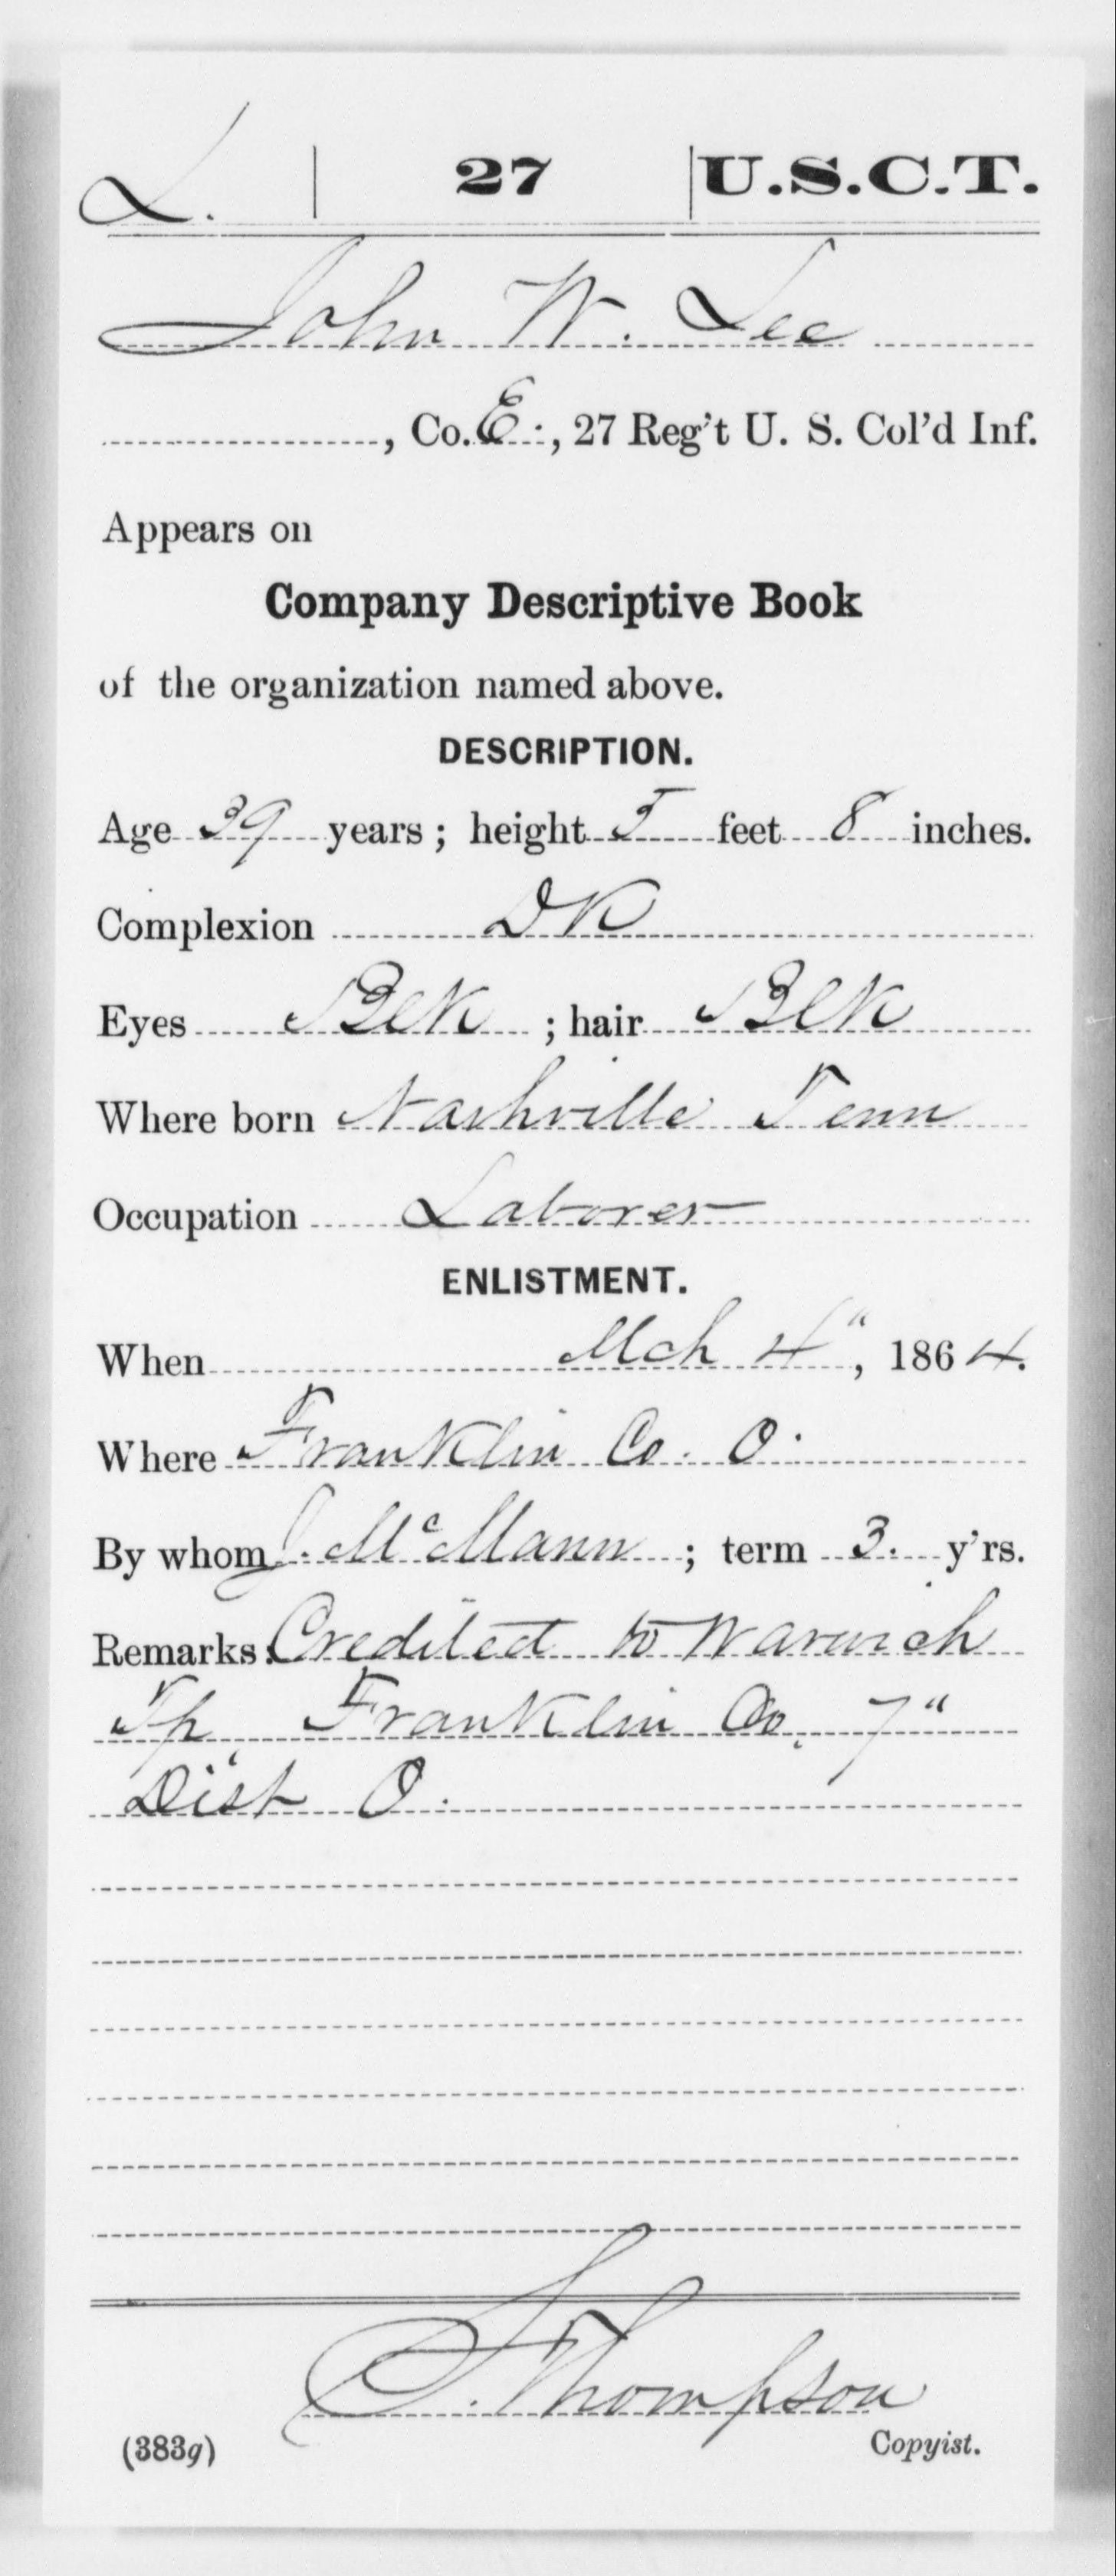 L. | 27 | U.S.C.T.
John W. Lee
, Co. E., 27 Reg't U. S. Col'd Inf.
Appears on
Company Descriptive Book
of the organization named above.
DESCRIPTION.
Age 39 years; height 5 feet 8 inches.
Complexion DK
Eyes Blk; hair Blk
Where born Nashville Tenn
Occupation Laborer
ENLISTMENT.
When Mch 4", 1864.
Where Franklin Co. O.
By whom J. McMann; term 3. y'rs.
Remarks: Credited to Warwich
Tp, Franklin Co. 7"
Dist O.
Thompson
(383g) Copyist.